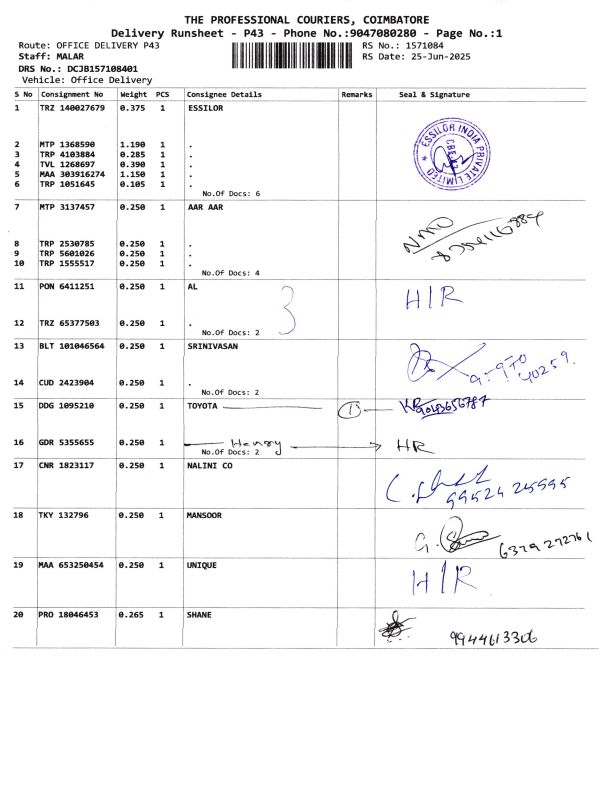 THE PROFESSIONAL COURIERS, COIMBATORE
Delivery Runsheet - P43 - Phone No.:9047080280 - Page No.:1
Route: OFFICE DELIVERY P43 RS No.: 1571084
Staff: MALAR RS Date: 25-Jun-2025
DRS No.: DCJB157108401
Vehicle: Office Delivery
S No Consignment No Weight PCS Consignee Details Remarks Seal & Signature
1 TRZ 140027679 0.375 1 ESSILOR
ESSILOR INDIA PRIVATE LIMITED
2 MTP 1368590 1.190 1 .
3 TRP 4103884 0.285 1 .
4 TVL 1268697 0.390 1 .
5 MAA 303916274 1.150 1 .
6 TRP 1051645 0.105 1 .
No.Of Docs: 6
7 MTP 3137457 0.250 1 AAR AAR
8 TRP 2530785 0.250 1 .
9 TRP 5601026 0.250 1 .
10 TRP 1555517 0.250 1 .
No.Of Docs: 4
11 PON 6411251 0.250 1 AL
3 H/R
12 TRZ 65377503 0.250 1 .
No.Of Docs: 2
13 BLT 101046564 0.250 1 SRINIVASAN
14 CUD 2423904 0.250 1 .
No.Of Docs: 2
15 DDG 1095210 0.250 1 TOYOTA 1
16 GDR 5355655 0.250 1 Henry HR
No.Of Docs: 2
17 CNR 1823117 0.250 1 NALINI CO
99524 25995
18 TKY 132796 0.250 1 MANSOOR
6379 272761
19 MAA 653250454 0.250 1 UNIQUE
H/R
20 PRO 18046453 0.265 1 SHANE
9944613306